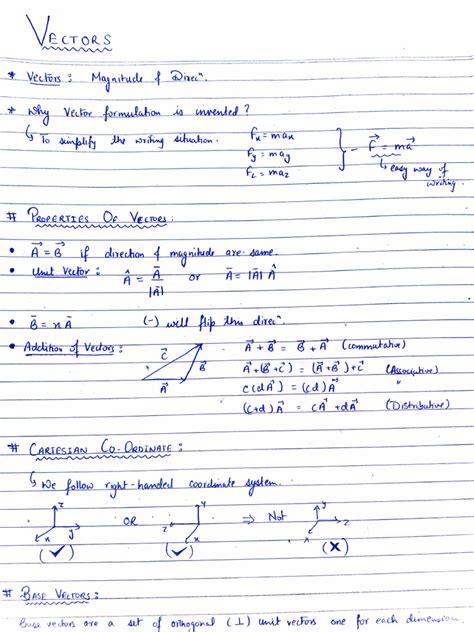 VECTORS
* Vectors : Magnitude & Direcⁿ.
* Why Vector formulation is invented?
↳ To simplify the writing situation.
Fx = max
Fy = may
Fz = maz
} - F⃗ = ma⃗
↳ easy way of writing.
# PROPERTIES OF VECTORS:
• A⃗ = B⃗ if direction & magnitude are same.
• Unit Vector : Â = A̅ / |A̅| or A̅ = |A̅| Â
• B̅ = n A̅ (-) will flip this direcⁿ.
• Addition of Vectors :
C⃗ B⃗ A⃗
A⃗ + B⃗ = B⃗ + A⃗ (commutative)
A⃗ + (B⃗ + C⃗) = (A⃗ + B⃗) + C⃗ (Associative)
c(dA⃗) = (cd)A⃗ "
(c+d)A⃗ = cA⃗ + dA⃗ (Distributive)
# CARTESIAN CO-ORDINATE :
↳ We follow right-handed coordinate system.
z y x (✓) OR y z x (✓) ⇒ Not y z x (✗)
# BASE VECTORS :
Base vectors are a set of orthogonal (⊥) unit vectors one for each dimension